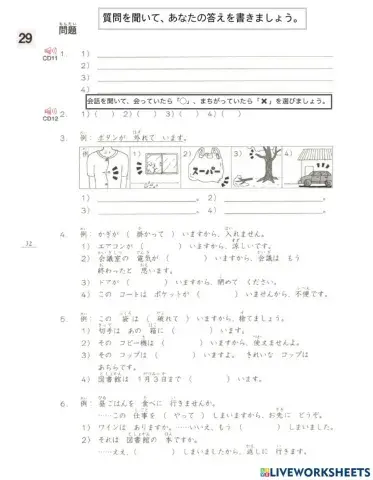 質問を聞いて、あなたの答えを書きましょう。
29
もんだい
問題
CD11
1. 1)
2)
3)
4)
会話を聞いて、会っていたら「○」、まちがっていたら「✖」を選びましょう。
CD12
2. 1) ( ) 2) ( ) 3) ( ) 4) ( )
3. 例：ボタンが 外れて います。
例
1)
2)
3)
4)
スーパー
1) 。 2) 。
3) 。 4) 。
4. 例：かぎが ( 掛かって ) いますから、入れません。
1) エアコンが ( ) いますから、涼しいです。
2) 会議室の 電気が ( ) いますから、会議は もう
終わったと 思います。
3) ドアが ( ) いますから、閉めて ください。
4) この コートは ポケットが ( ) いませんから、不便です。
12
5. 例：この 袋は ( 破れて ) いますから、捨てましょう。
1) 切手は あの 箱に ( ) います。
2) その コピー機は ( ) いますから、使えませんよ。
3) その コップは ( ) いますよ。 きれいな コップは
あちらです。
4) 図書館は 1月3日まで ( ) います。
6. 例：昼ごはんを 食べに 行きませんか。
……この 仕事を ( やって ) しまいますから、お先に どうぞ。
1) ワインは ありますか。……いいえ、もう ( ) しまいました。
2) それは 図書館の 本ですか。
……ええ、( ) しまいましたから、返しに 行きます。
LIVEWORKSHEETS